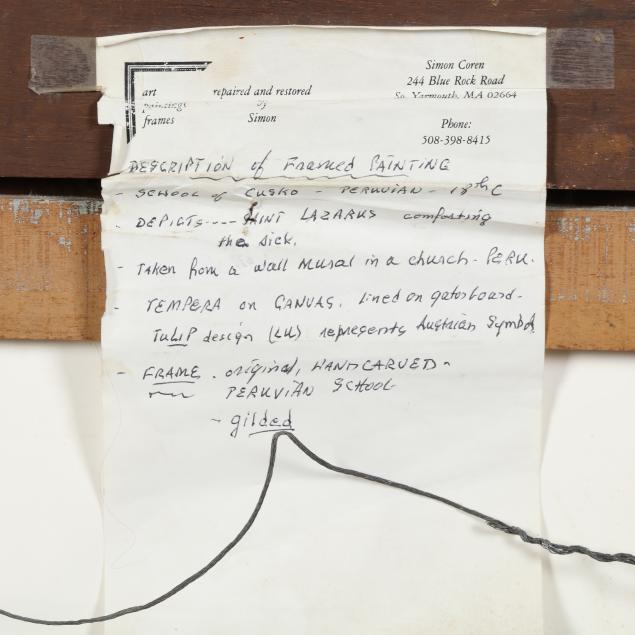 art repaired and restored
paintings by
frames Simon
Simon Coren
244 Blue Rock Road
So. Yarmouth, MA 02664
Phone:
508-398-8415
DESCRIPTION of Framed PAINTING
- SCHOOL of CUSKO - PERUVIAN - 18thC
- DEPICTS---- SAINT LAZARUS comforting
the sick.
- Taken from a wall Mural in a church - PERU.
- TEMPERA on CANVAS. lined on gatorboard -
TULIP design (LU) represents Austrian Symbol
- FRAME. original, HANDCARVED -
PERUVIAN SCHOOL
- gilded